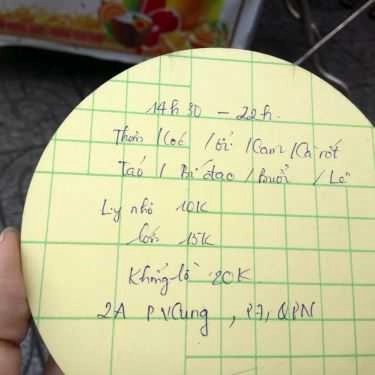 14h30 - 22h.
Thơm / Cóc / ổi / Cam / Cà rốt
Táo / Bí đao / Bưởi / Lê
Ly nhỏ 10K
lớn 15K
Khổng lồ 20K
2A PVCung, P7, QPN